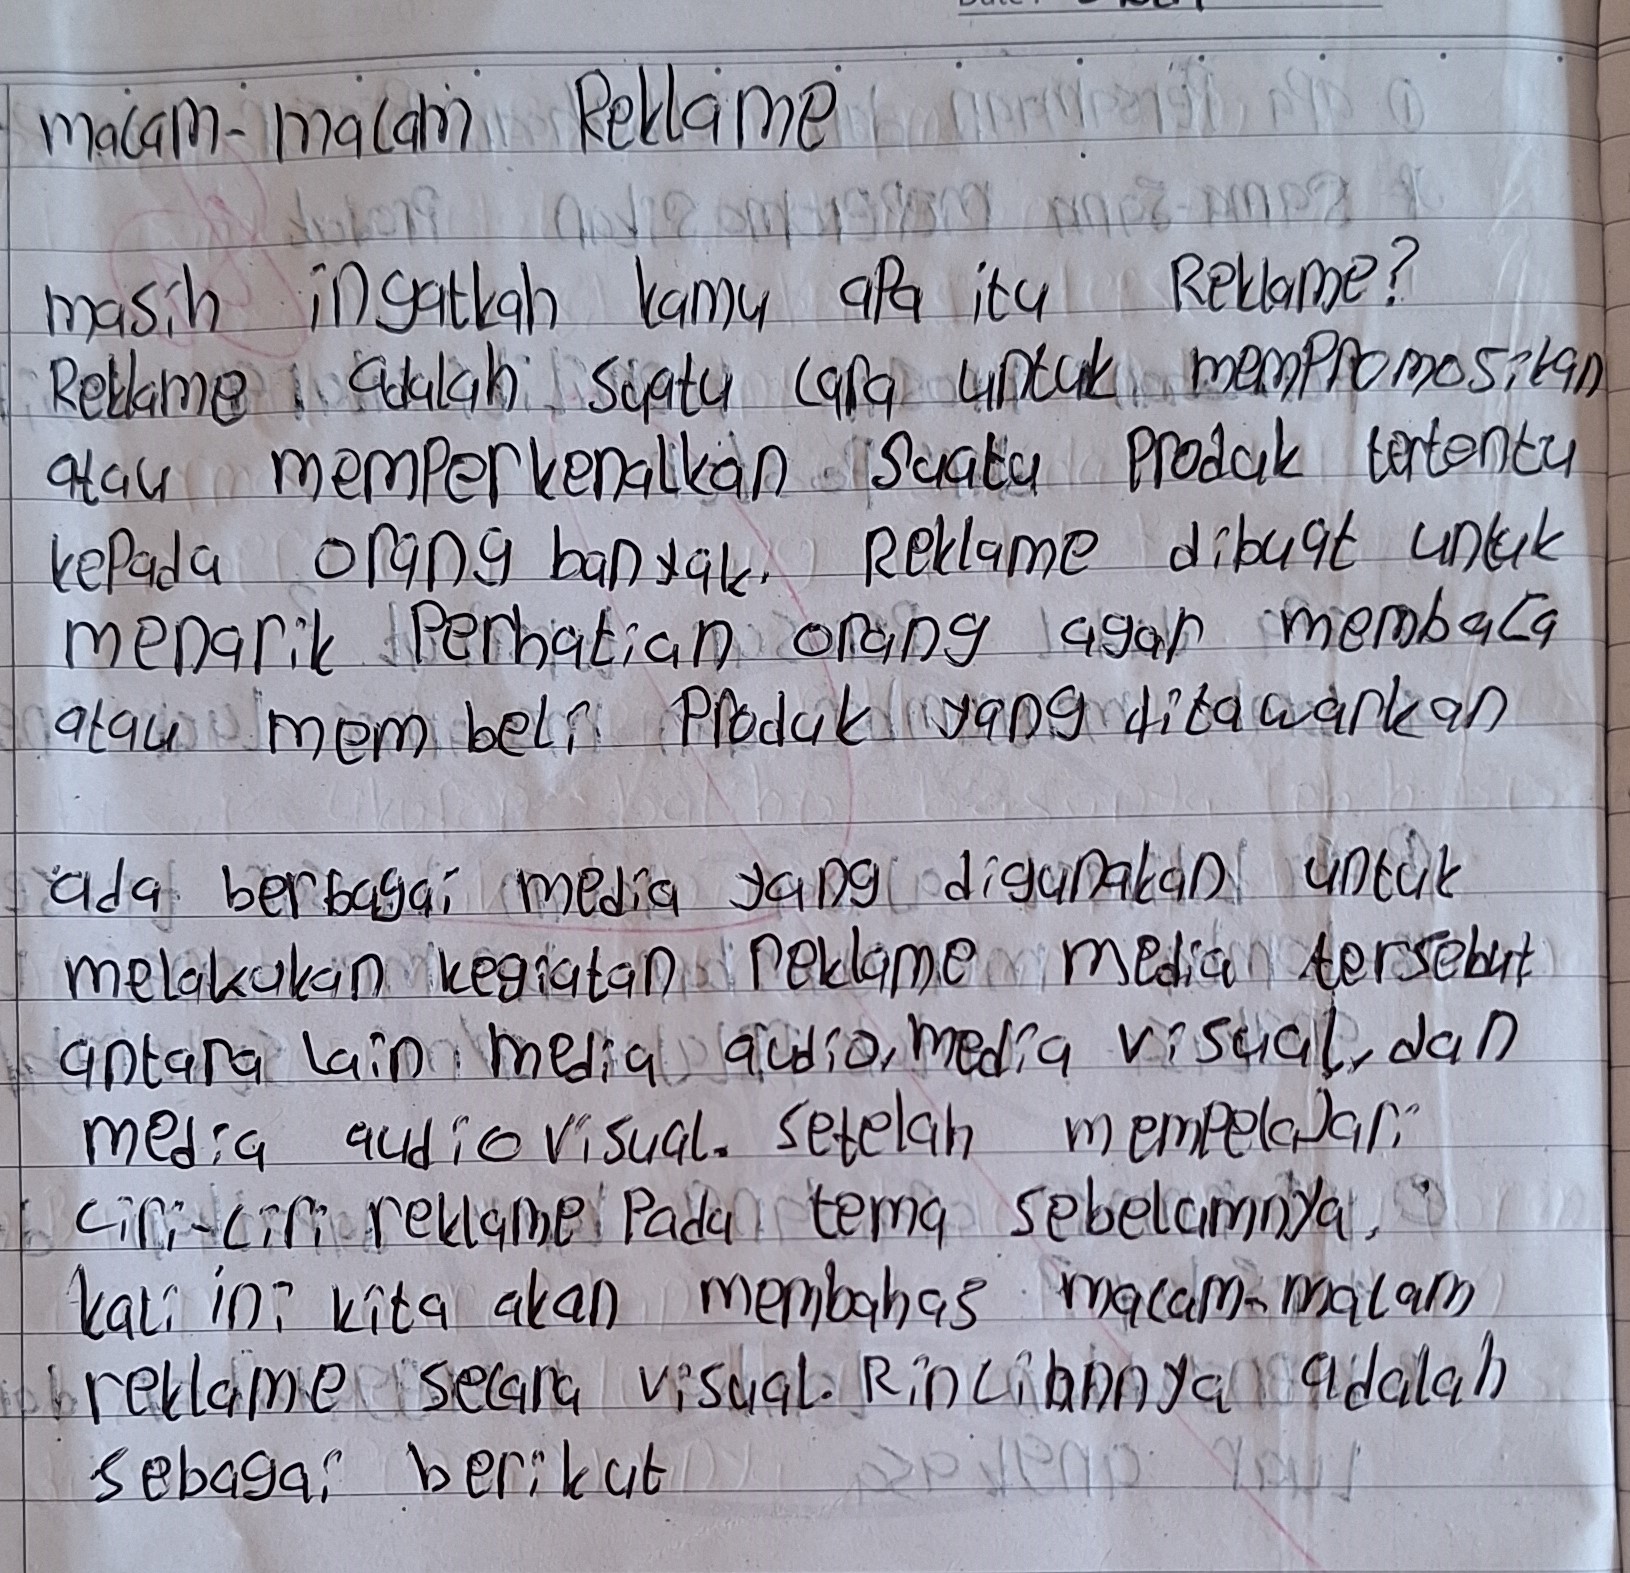 macam-macam Reklame
masih ingatkah kamu apa itu Reklame?
Reklame adalah suatu cara untuk mempromosikan
atau memperkenalkan suatu produk tertentu
kepada orang banyak. Reklame dibuat untuk
menarik perhatian orang agar membaca
atau mem beli produk yang ditawarkan
ada berbagai media yang digunakan untuk
melakukan kegiatan reklame media tersebut
antara lain media audio, media visual, dan
media audio visual. setelah mempelajari
ciri-ciri reklame pada tema sebelumnya,
kali ini kita akan membahas macam-macam
reklame secara visual. Rinciannya adalah
sebagai berikut